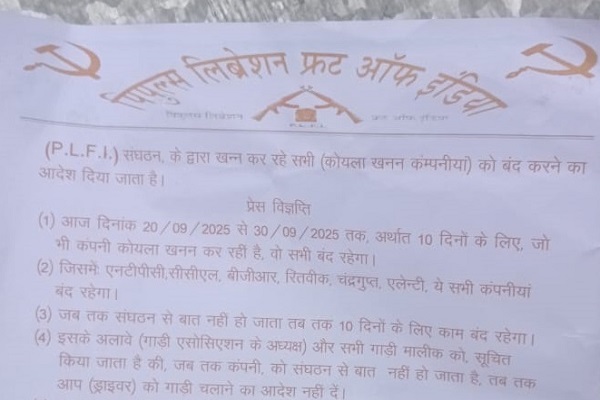 पिपुल्स लिब्रेशन फ्रट ऑफ इंडिया
पिपुल्स लिब्रेशन फ्रट ऑफ इंडिया
P.L.F.I.
(P.L.F.I.) संघठन, के द्वारा खन्न कर रहे सभी (कोयला खनन कंम्पनीयां) को बंद करने का
आदेश दिया जाता है।
प्रेस विज्ञप्ति
(1) आज दिनांक 20/09/2025 से 30/09/2025 तक, अर्थात 10 दिनों के लिए, जो
भी कंपनी कोयला खनन कर रहीं है, वो सभी बंद रहेगा।
(2) जिसमें एनटीपीसी,सीसीएल, बीजीआर, रितवीक, चंद्रगुप्त, एलेन्टी, ये सभी कंपनीयां
बंद रहेगा।
(3) जब तक संघठन से बात नहीं हो जाता तब तक 10 दिनों के लिए काम बंद रहेगा।
(4) इसके अलावे (गाड़ी एसोसिएशन के अध्यक्ष) और सभी गाड़ी मालीक को, सूचित
किया जाता है की, जब तक कंपनी, को संघठन से बात नहीं हो जाता है, तब तक
आप (ड्राइवर) को गाड़ी चलाने का आदेश नहीं दें।